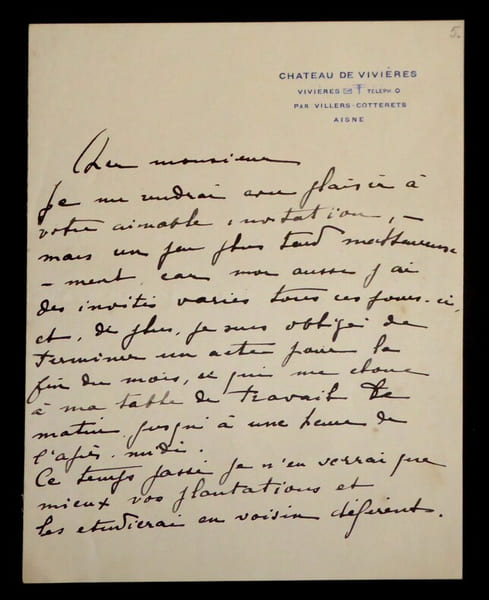 5.
CHATEAU DE VIVIÈRES
VIVIERES TÉLÉPH. O
PAR VILLERS-COTTERETS
AISNE
Cher monsieur
Je me rendrai avec plaisir à
votre aimable invitation, -
mais un peu plus tard malheureuse
- ment, car moi aussi j'ai
des invités variés tous ces jours-ci,
et, de plus, je suis obligé de
terminer un acte pour la
fin du mois, ce qui me cloue
à ma table de travail le
matin jusqu'à une heure de
l'après-midi.
Ce temps passé je n'en verrai que
mieux vos plantations et
les etudierai en voisin déférent.